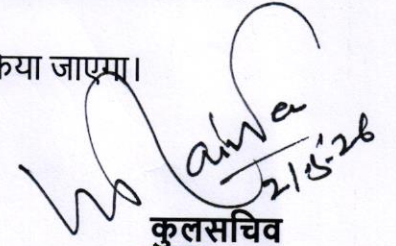 किया जाएगा।
21-5-26
कुलसचिव